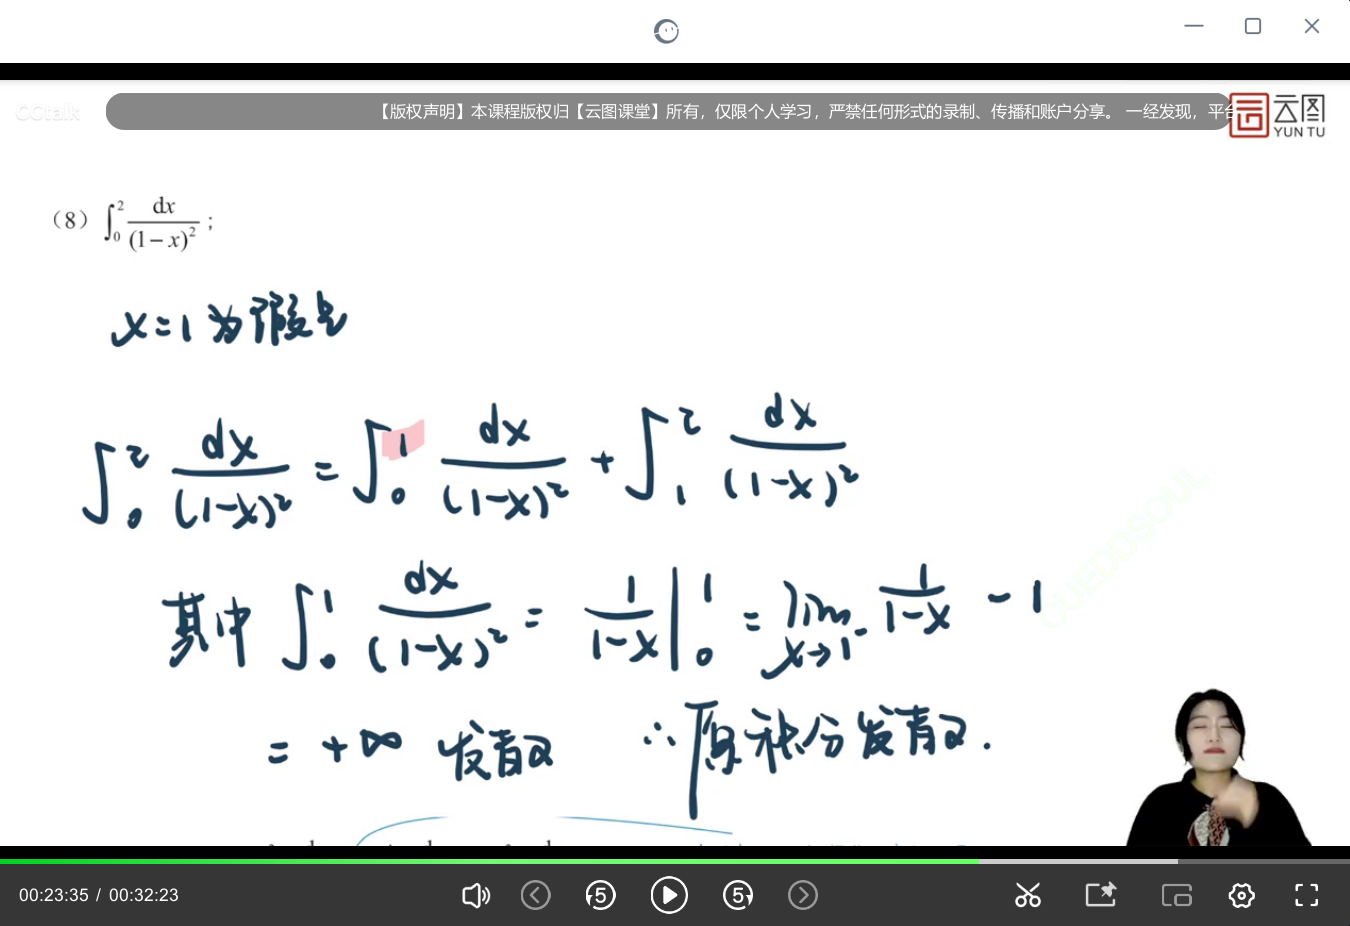 CCtalk
【版权声明】本课程版权归【云图课堂】所有，仅限个人学习，严禁任何形式的录制、传播和账户分享。 一经发现，平台
云图
YUN TU
（8）∫₀² dx/(1−x)² ;
x=1为瑕点
∫₀² dx/(1-x)² = ∫₀¹ dx/(1-x)² + ∫₁² dx/(1-x)²
其中 ∫₀¹ dx/(1-x)² = 1/(1-x) |₀¹ = lim x→1⁻ 1/(1-x) - 1
= +∞ 发散 ∴原积分发散.
CUEDDSOUL
00:23:35 / 00:32:23
5
5